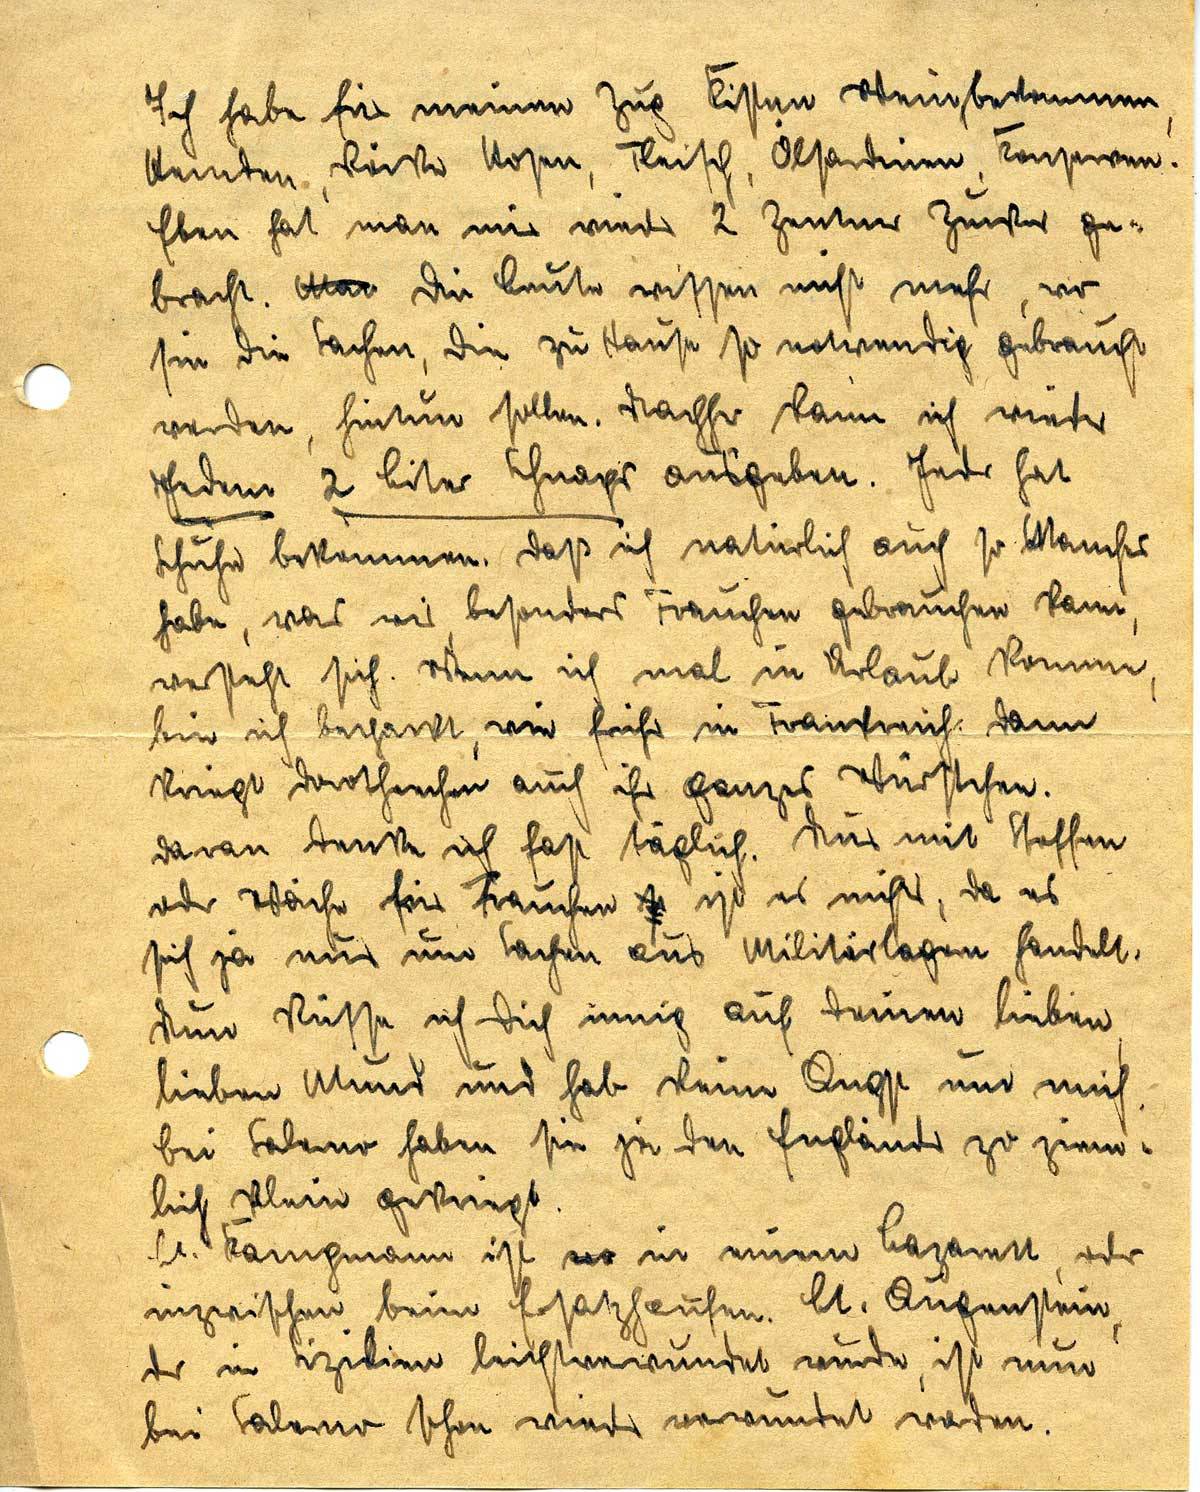 Ich habe für meinen Zug Kisten Wein bekommen,
Hemden, Röcke Hosen, Fleisch, Ölsardinen, Konserven.
Eben hat man mir wieder 2 Zentner Zucker ge-
bracht. Die Leute wissen nicht mehr, wo
sie die Sachen, die zu Hause so notwendig gebraucht
werden, hintun sollen. Nachher kann ich wieder
Jedem 2 Liter Schnaps ausgeben. Jeder hat
Schuhe bekommen. Daß ich natürlich auch so Manches
habe, was wir, besonders Frauchen gebrauchen kann,
versteht sich. Wenn ich mal in Urlaub komme,
bin ich bepackt, wie früher in Frankreich. Dann
kriegt Dorotheechen auch ihr ganzes Würstchen.
Daran denke ich fast täglich. Nur mit Stoffen
oder Wäsche für Frauchen ist es nichts, da es
sich ja nur um Sachen aus Militärlagern handelt.
Nun küsse ich Dich innig auf Deinen lieben,
lieben Mund und hab keine Angst um mich.
Bei Salerno haben sie ja den Engländer so ziem-
lich klein gekriegt.
Lt. Kampmann ist in einem Lazarett, oder
inzwischen beim Ersatzhaufen. Lt. Augenstein,
der in Sizilien leichtverwundet wurde, ist nun
bei Salerno schon wieder verwundet worden.